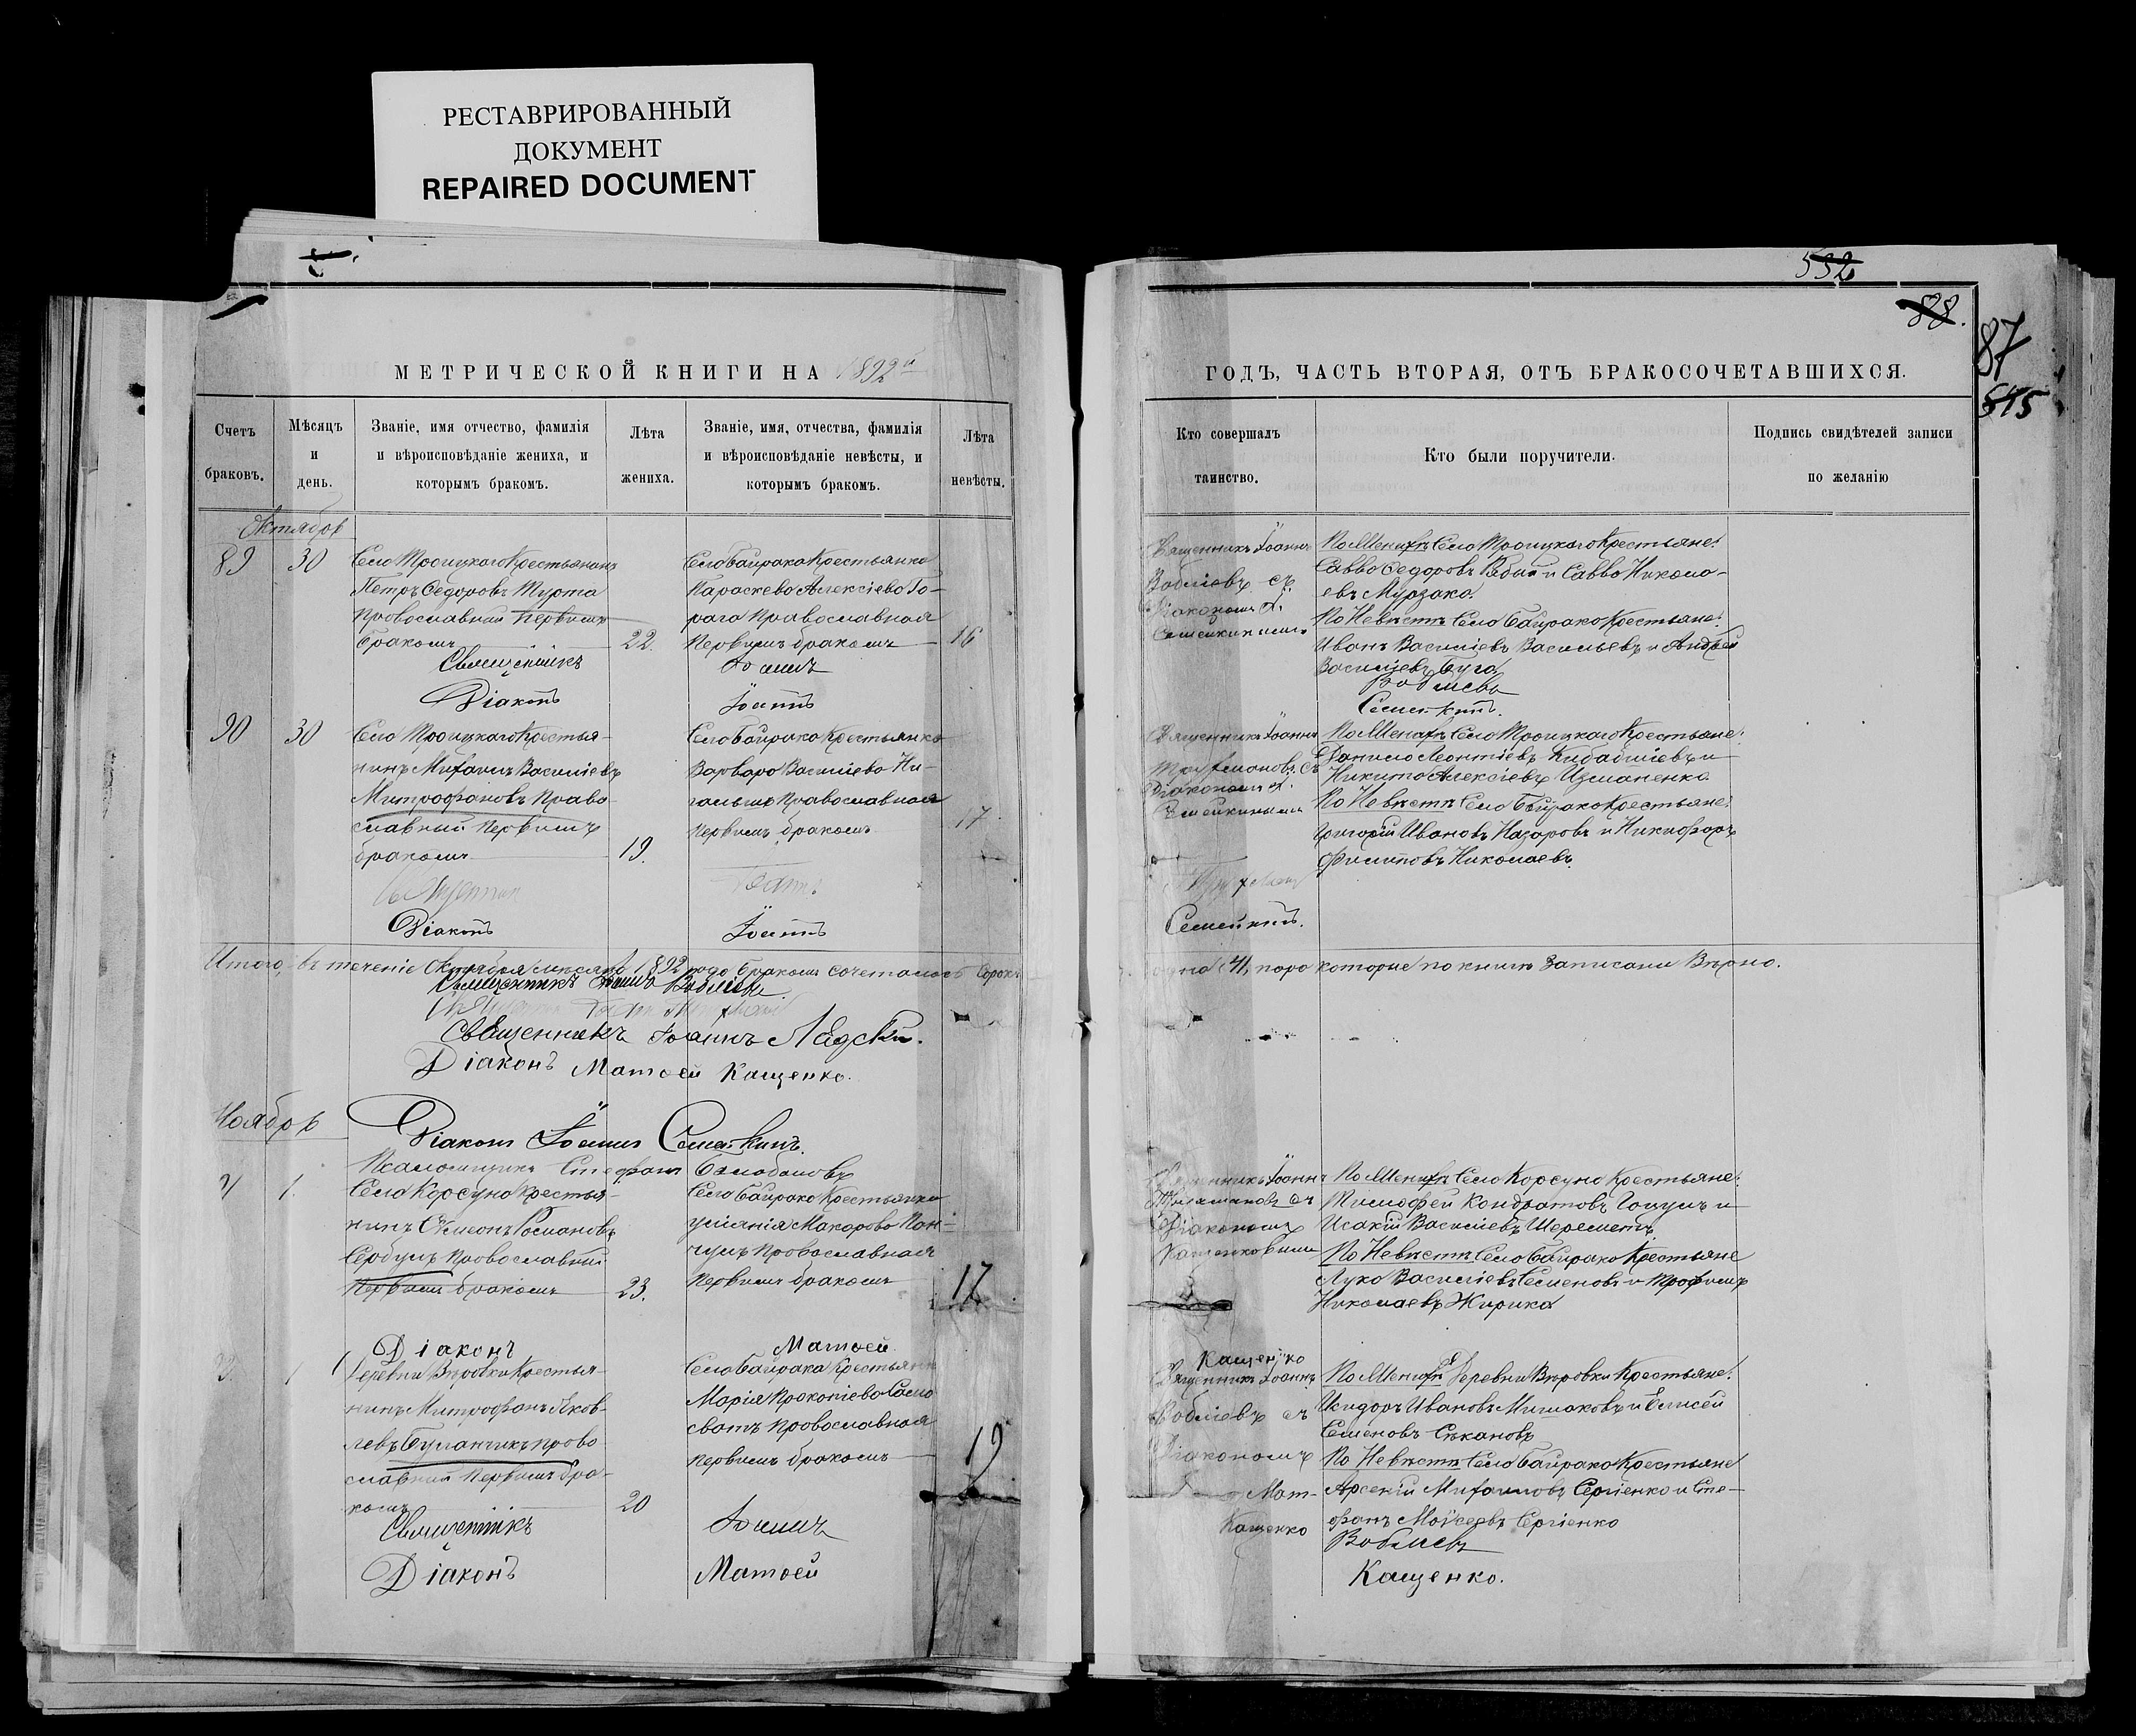 РЕСТАВРИРОВАННЫЙ
ДОКУМЕНТ
REPAIRED DOCUMENT
532
88.
87
515
МЕТРИЧЕСКОЙ КНИГИ НА 1892й
ГОДЪ, ЧАСТЬ ВТОРАЯ, ОТЪ БРАКОСОЧЕТАВШИХСЯ.
Счетъ
браковъ.
Мѣсяцъ
и
день.
Званіе, имя отчество, фамилія
и вѣроисповѣданіе жениха, и
которымъ бракомъ.
Лѣта
жениха.
Званіе, имя, отчества, фамилія
и вѣроисповѣданіе невѣсты, и
которымъ бракомъ.
Лѣта
невѣсты.
Кто совершалъ
таинство.
Кто были поручители.
Подпись свидѣтелей записи
по желанію
Октябрь
89
30
Села Троицкаго Крестьянинъ
Петръ Федоровъ Мурта
Православный первымъ
бракомъ
22.
Села Байрака Крестьянка
Параскева Алексіева Го-
рага Православная
Первымъ бракомъ
16
Священникъ Іоаннъ
Воблiевъ съ
Діакономъ І.
Семейкинымъ
По Женихѣ Села Троицкаго Крестьяне:
Савва Федоровъ и Савва Никола-
евъ Мурзака.
По Невѣстѣ Села Байрака Крестьяне:
Иванъ Василіевъ Васильевъ и Андрей
Василіевъ Буга.
Священникъ Іоаннъ Воблiевъ
Діаконъ Іоаннъ Семейкинъ.
90
30
Села Троицкаго Крестья-
нинъ Михаилъ Василіевъ
Митрофановъ Право-
славный первымъ
бракомъ
19.
Села Байрака Крестьянка
Варвара Василіева Ни-
Православная
Первымъ бракомъ
17
Священникъ Іоаннъ
съ
Діакономъ І.
Семейкинымъ
По Женихѣ Села Троицкаго Крестьяне:
Данило Леонтіевъ и
Никита Алексіевъ Измаиенко
По Невѣстѣ Села Байрака Крестьяне:
Григорій Ивановъ Назаровъ и Никифоръ
Филиповъ Николаевъ.
Діаконъ Іоаннъ Семейкинъ.
Итого, въ теченіе Октября мѣсяца 1892 года бракомъ сочеталось Сорокъ
одна (41) пара которые по книгѣ записаны Вѣрно.
Священникъ Іоаннъ Воблiевъ.
Священникъ Іоаннъ Лядскій.
Діаконъ Матѳей Кащенко.
Діаконъ Іоаннъ Семейкинъ.
Псаломщикъ Стефанъ Балабановъ
Ноябрь
1.
Села Корсуна Крестья-
нинъ Сѵмеонъ Романовъ
Сербулъ Православный
Первымъ бракомъ
23.
Села Байрака Крестьянка
Макарова Пан-
Православная
Первымъ бракомъ
17
Священникъ Іоаннъ
съ
Діакономъ
Кащенковымъ
По Женихѣ Села Корсуна Крестьяне:
Тимофей Кондратовъ и
Исакій Василіевъ Шереметъ
По Невѣстѣ Села Байрака Крестьяне
Лука Василіевъ Семеновъ и Трофимъ
Николаевъ Жирика
Діаконъ Матѳей Кащенко
1
Деревни Вѣровки Крестья-
нинъ Митрофанъ Яков-
левъ Буланчикъ право-
славный Первымъ бра-
комъ
20
Села Байрака Крестьянка
Марія Прокопіева Само-
сватъ Православная
Первымъ бракомъ
19
Священникъ Іоаннъ
Воблiевъ съ
Діакономъ
Мат-
Кащенко
По Женихѣ Деревни Вѣровки Крестьяне:
Исидоръ Ивановъ Мишаковъ и Елисей
Семеновъ Сѣкановъ
По Невѣстѣ Села Байрака Крестьяне
Арсеній Михаиловъ Сергіенко и Сте-
фанъ Моѵсеевъ Сергіенко
Священникъ Іоаннъ Воблiевъ
Діаконъ Матѳей Кащенко.